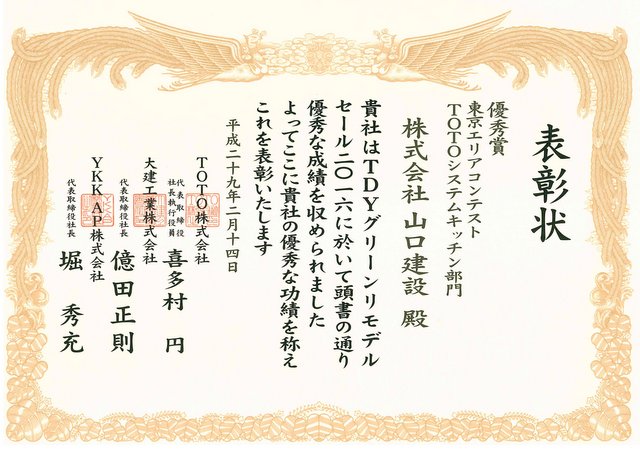 表彰状
優秀賞
東京エリアコンテスト
TOTOシステムキッチン部門
株式会社 山口建設 殿
貴社はTDYグリーンリモデル
セール二〇一六に於いて頭書の通り
優秀な成績を収められました
よってここに貴社の優秀な功績を称え
これを表彰いたします
平成二十九年二月十四日
TOTO株式会社
代表取締役
社長執行役員
喜多村 円
大建工業株式会社
代表取締役社長
億田正則
YKK AP株式会社
代表取締役社長
堀 秀充